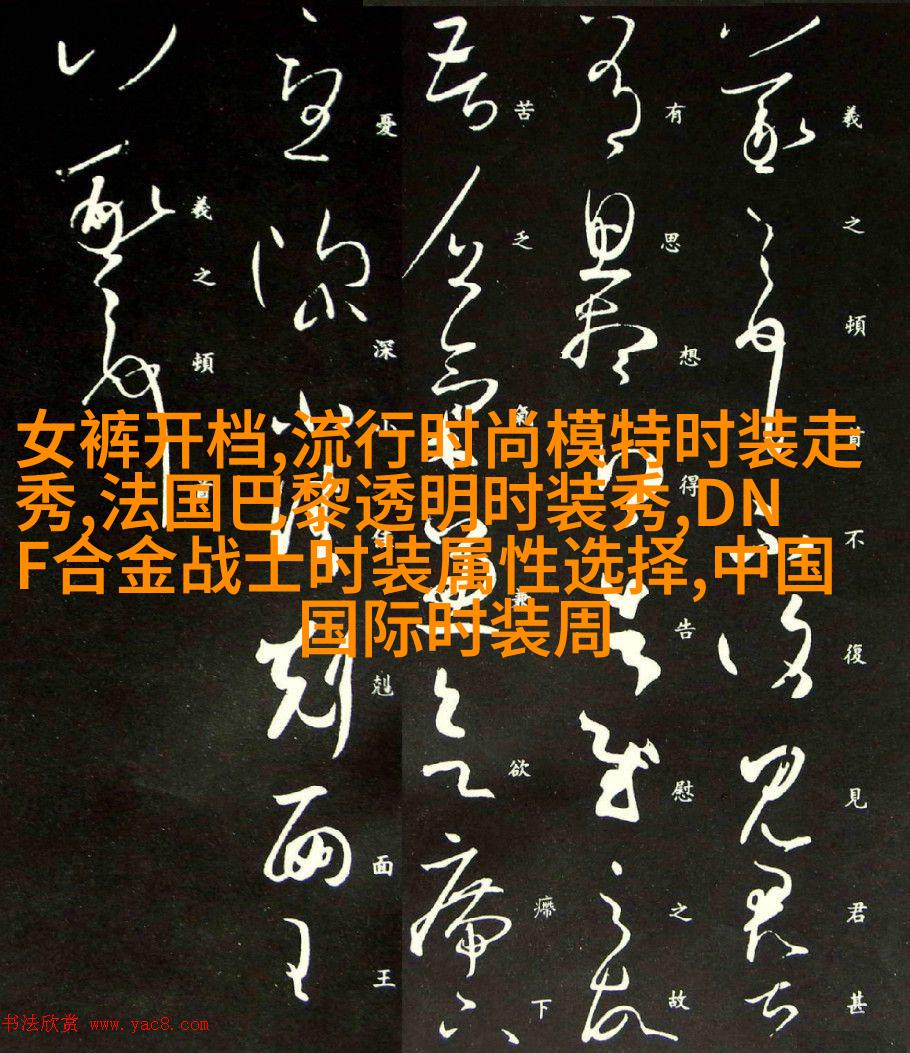 女裤开档,流行时尚模特时装走
秀,法国巴黎透明时装秀,DN
F合金战士时装属性选择,中国
国际时装周
羲之頓首不復見君甚
有思想得告慰之故
苦乏氣兼欲㿃下
憂深小佳剋面王
羲之頓
书法欣赏 www.yac8.com